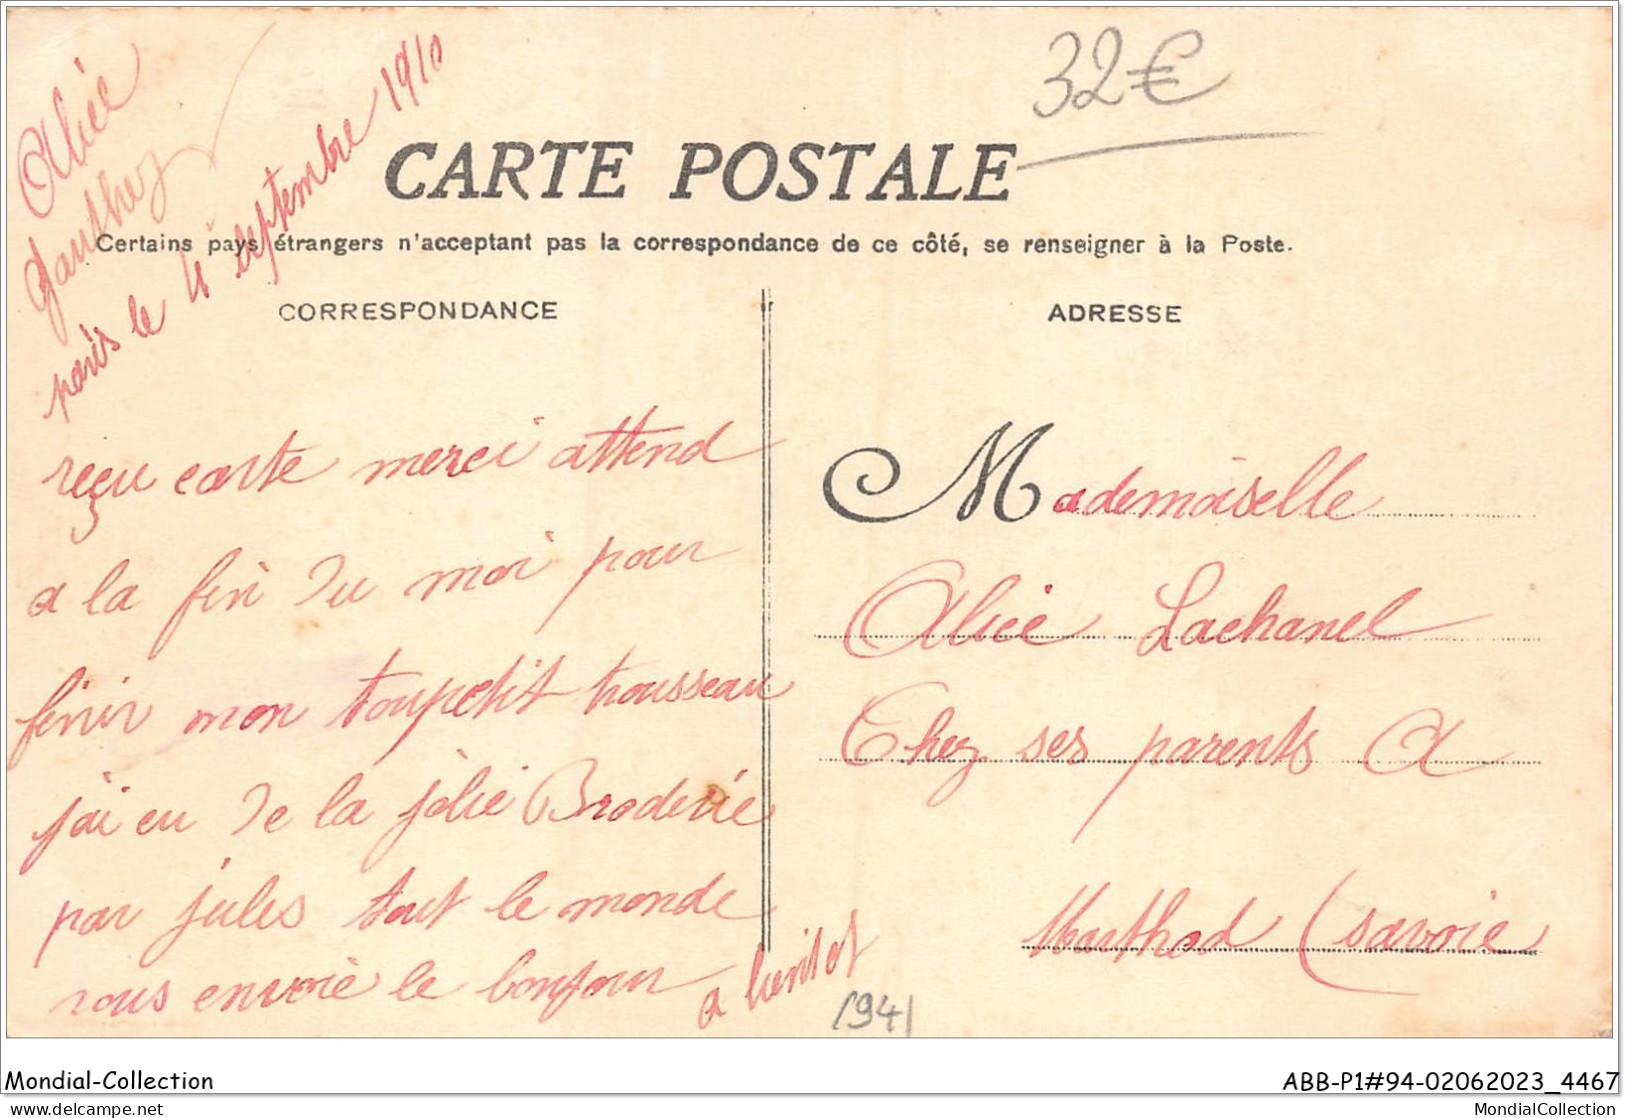 Alice
Gauthez
paris le 4 septembre 1910
32€
CARTE POSTALE
Certains pays étrangers n'acceptant pas la correspondance de ce côté, se renseigner à la Poste.
CORRESPONDANCE
reçu carte merci attend
a la fin du moi pour
finir mon toupetit trousseau
jai eu de la jolie Broderie
par jules tout le monde
vous envoie le bonjour
a bientot
ADRESSE
Mademoiselle
Alice Lachanel
Chez ses parents A
Marthod (savoie
1941
Mondial-Collection
ABB-P1#94-02062023_4467
delcampe.net
MondialCollection